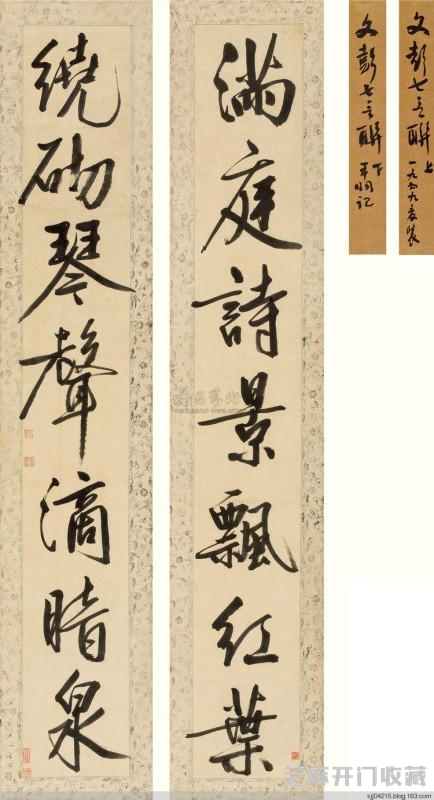 满庭詩景飄红葉
繞砌琴聲滴暗泉
文彭七言聯 上
一九五九年裝
文彭七言聯 下
芝麻开门收藏
xjj04215.blog.163.com